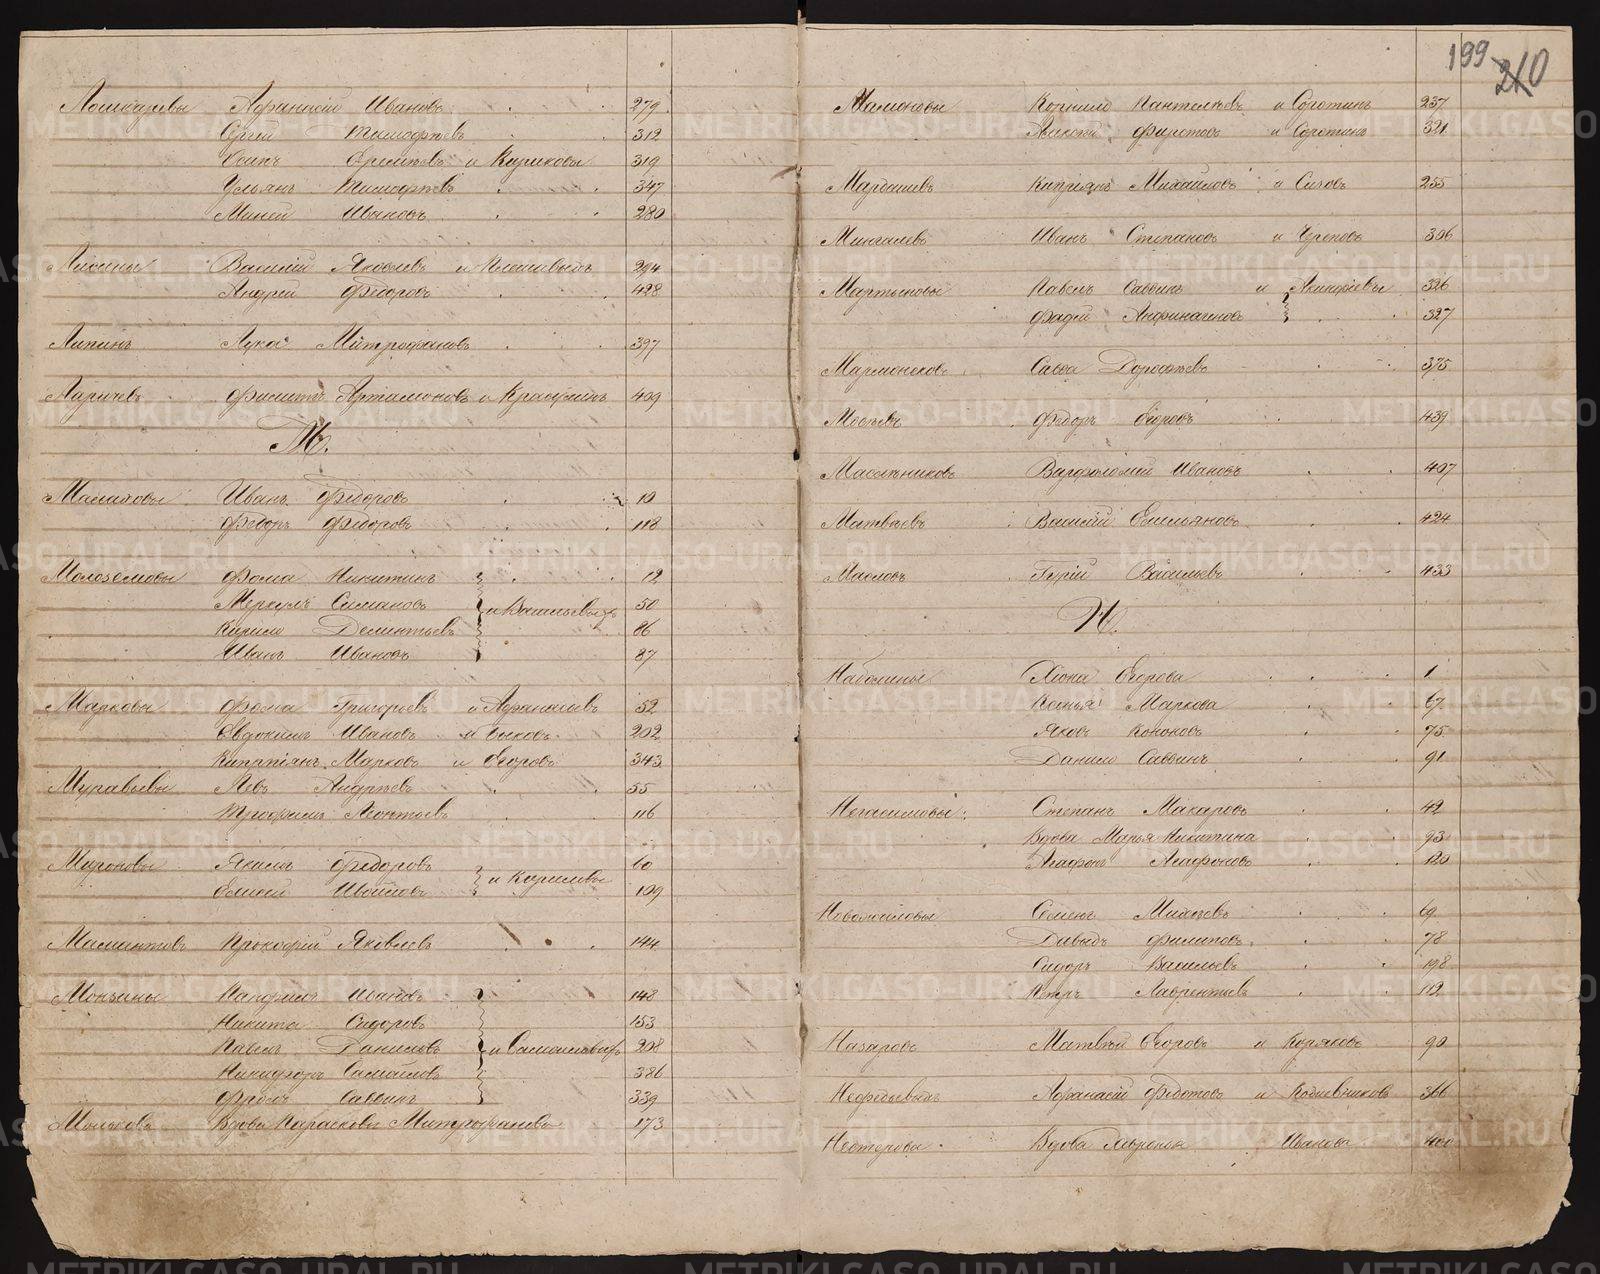 199 210
Лошкаревы Афанасий Ивановъ 279
Сергей Тимофѣевъ 312
Осипъ Еремѣевъ и Кириковы 319
Ульянъ Тимофѣевъ 347
Миней Ивановъ 280
Василий Яковлевъ и 294
Андрей Федоровъ 428
Липинъ Лука Митрофановъ 397
Ларичевъ Артамоновъ и 409
М.
Малаховы Иванъ Федоровъ 10
Федоръ Федоровъ 118
Молоземовы Фома Никитинъ 12
Меркулъ Симановъ и Васильевыхъ 50
Кирило Дементьевъ 86
Иванъ Ивановъ 87
Марковы Фома Григорьевъ и Афанасьевъ 52
Евдокимъ Ивановъ и Быковъ 202
Кипріянъ Марковъ и Егоровъ 343
Муравьевы Левъ Андрѣевъ 55
Трофимъ Леонтьевъ 116
Мироновы Якимъ Федоровъ 60
Елисей и Кириловы 109
Мамантовъ Прокофій Яковлевъ 144
Монзины Панфилъ Ивановъ 148
Никита Сидоровъ 153
Павелъ Даниловъ и Самойловыхъ 208
Никифоръ Самойловъ 386
Фролъ Саввинъ 339
Вдова Парасковья Митрофанова 173
Мамоновы Корнило Пантелѣевъ и Соротинъ 237
Федотовъ и Соротинъ 321
Мардышевъ Кипріянъ Михайловъ и Сизовъ 255
Мингалевъ Иванъ Степановъ и Череповъ 306
Мартыновы Павелъ Саввинъ и Акинфіевы 326
Фадей Анфиногеновъ 327
Савва Дорофѣевъ 375
Мосѣевъ Федоръ Егоровъ 439
Масленниковъ Варфоломей Ивановъ 407
Матвѣевъ Василій Емельяновъ 424
Масловъ Гурій Васильевъ 433
Н.
Наболины Хіона Егорова 1
Маркова 67
Яковъ Кононовъ 75
Данило Саввинъ 91
Негасимовы Степанъ Макаровъ 42
Вдова Марья Никитина 93
Агафонъ Агафоновъ 120
Новожиловы Семенъ Михѣевъ 69
Давыдъ Филиповъ 78
Сидоръ Васильевъ 108
Петръ Лаврентьевъ 112
Назаровъ Матвѣй Егоровъ и Коряковъ 90
Нефедьевыхъ Афанасій Федотовъ и 366
Нестерова Вдова Иванова 400
METRIKI.GASO-URAL.RU